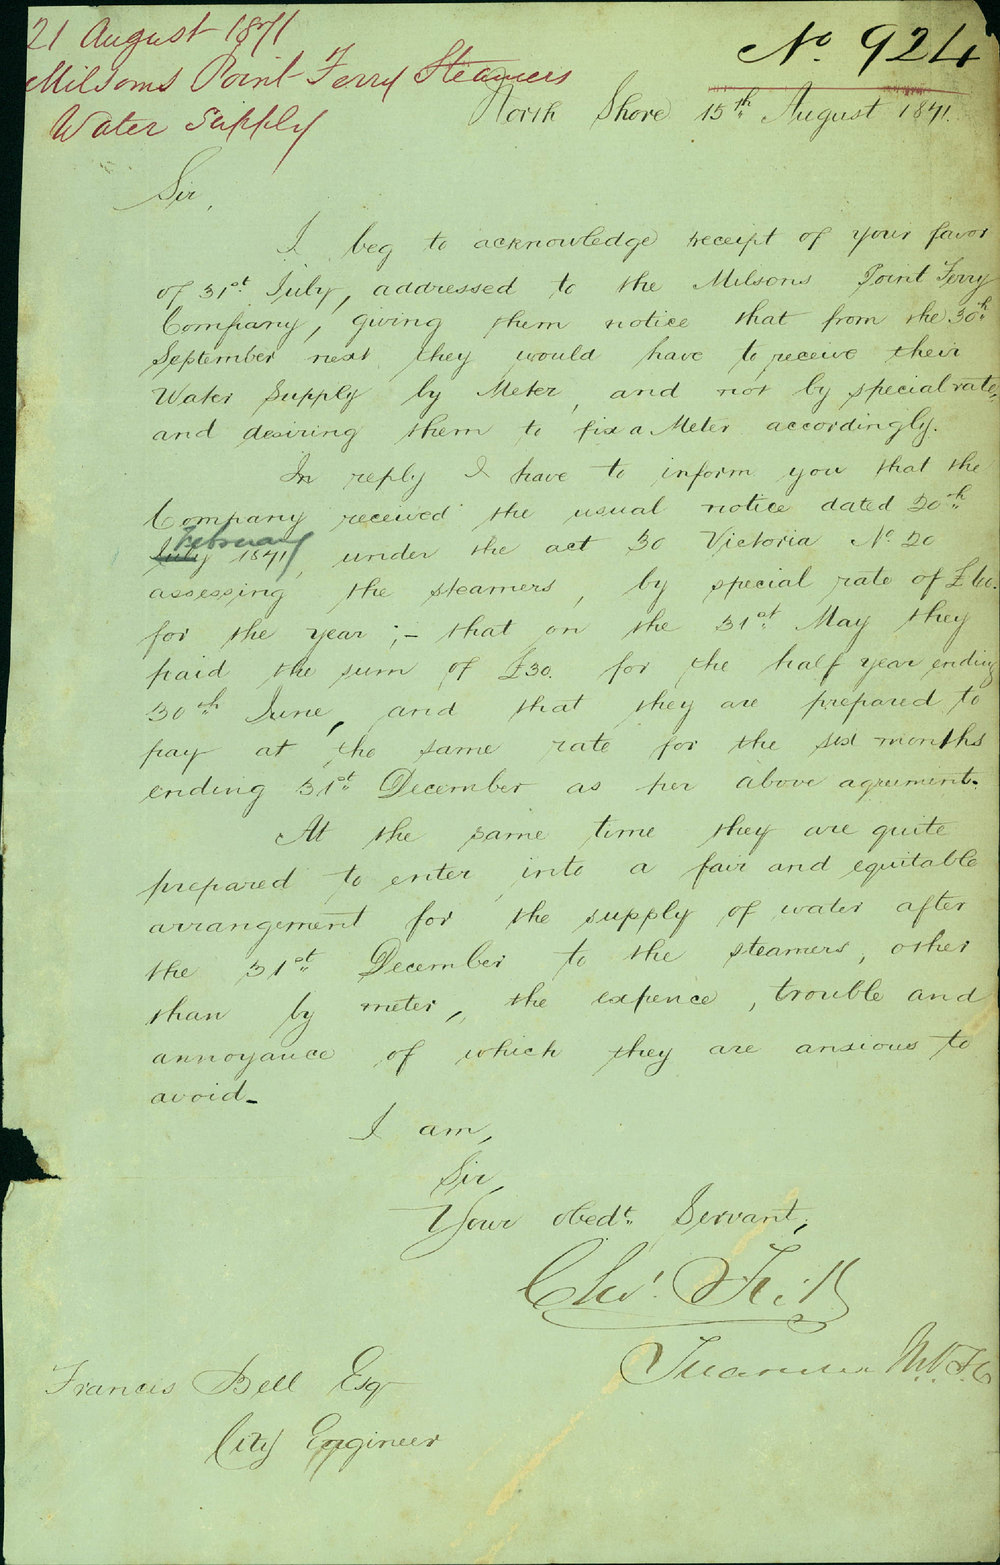 21 August 1871
Milsoms Point Ferry Steamers
Water Supply
No. 924
North Shore 15th August 1871.
Sir,
I beg to acknowledge receipt of your favor
of 31st. July, addressed to the Milsons Point Ferry
Company, giving them notice that from the 30th
September next they would have to receive their
Water Supply by Meter, and not by special rate,
and desiring them to fix a Meter accordingly.
In reply I have to inform you that the
Company received the usual notice dated 20th
February
July 1871, under the act 30 Victoria No. 20
assessing the steamers, by special rate of £60.
for the year;– that on the 31st. May they
paid the sum of £30. for the half year ending
30th June, and that they are prepared to
pay at the same rate for the six months
ending 31st. December as per above agreement.
At the same time they are quite
prepared to enter into a fair and equitable
arrangement for the supply of water after
the 31st. December to the steamers, other
than by meter, the expence, trouble and
annoyance of which they are anxious to
avoid.
I am,
Sir,
Your obedt. Servant,
M.P.F.C
Francis Bell Esq
City Engineer